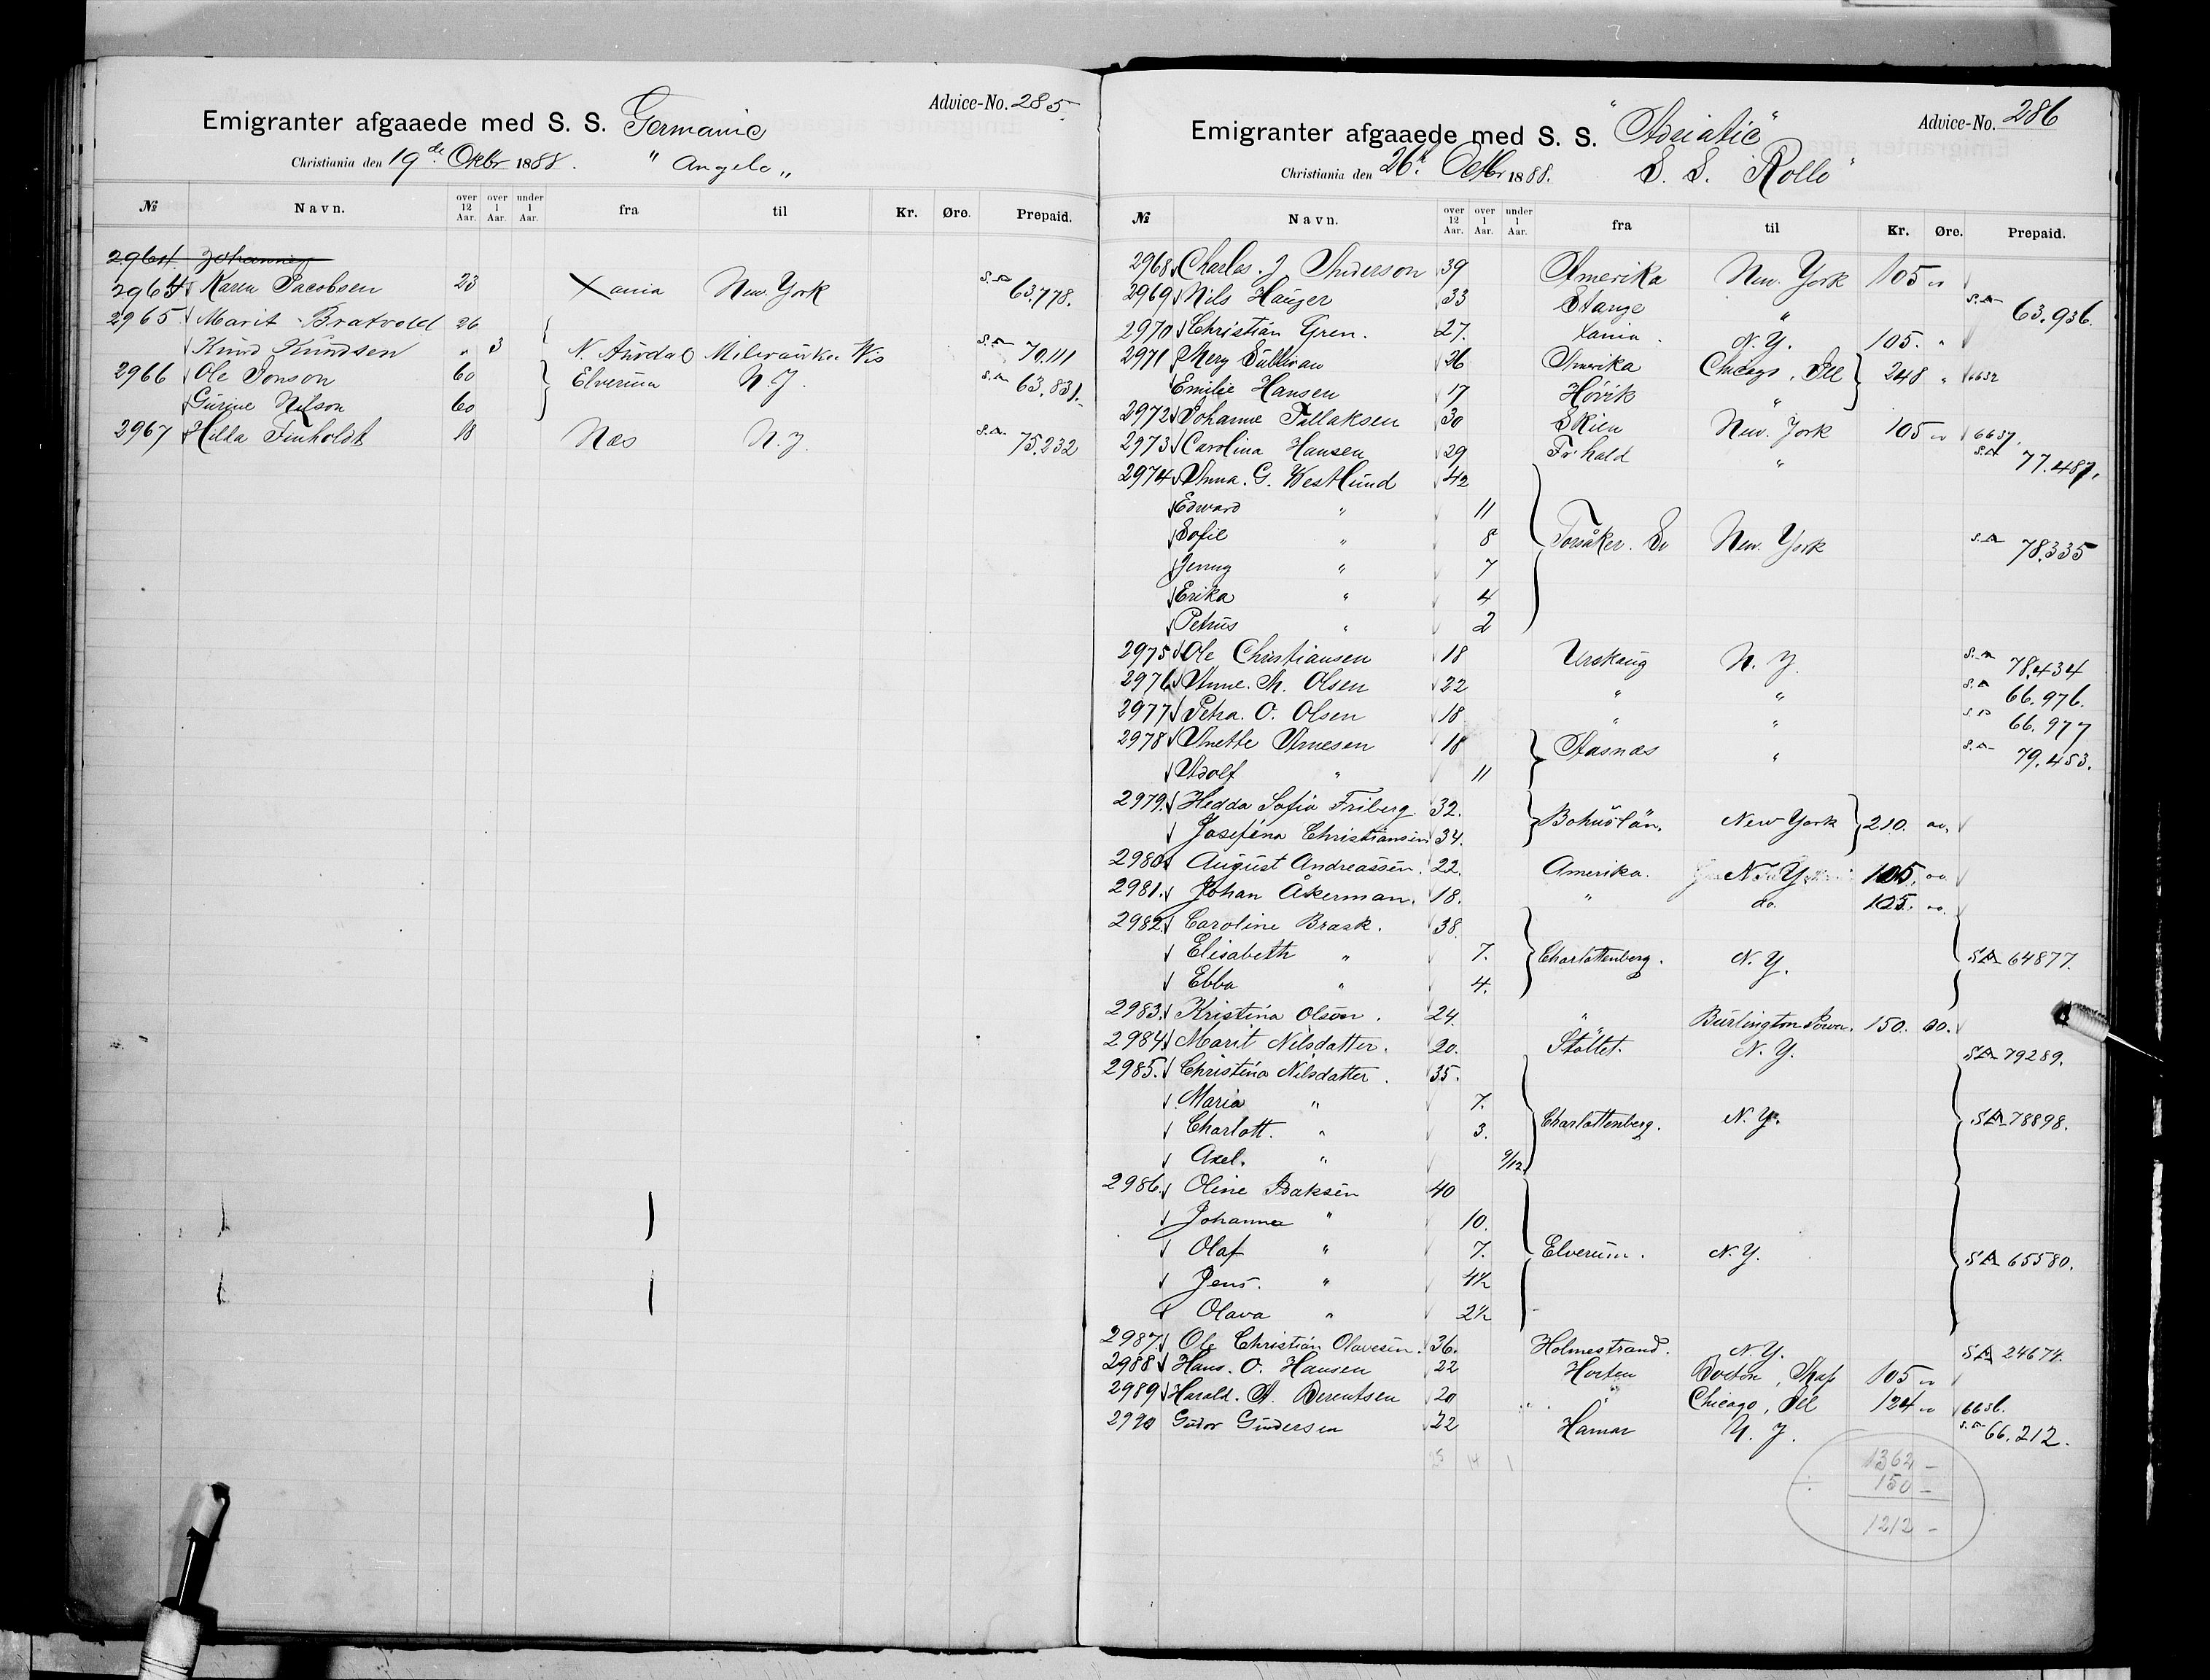 Advice-No. 285.
Emigranter afgaaede med S. S. Germanic
Christiania den 19de Oktbr 1888. " Angelo "
№ Navn. over 12 Aar. over 1 Aar. under 1 Aar. fra til Kr. Øre. Prepaid.
2964 Johannes
2964 Karen Jacobsen 23 Xania New York S.A. 63,778.
2965 Marit Bratvold 26
Knud Knudsen " 3 N. Aurdal Milwaukee Wis S.A. 70,111
2966 Ole Jonson 60 Elverum N.Y. S.A. 63,831.
Gurine Nilson 60
2967 Hilda Finholdt 18 Næs N.Y. S.A. 75,232
Advice-No. 286
Emigranter afgaaede med S. S. "Adriatic"
Christiania den 26d Octbr 1888. S. S. "Rollo"
№ Navn. over 12 Aar. over 1 Aar. under 1 Aar. fra til Kr. Øre. Prepaid.
2968 Charles. J. Anderson 39 Amerika New York 105 "
2969 Nils Hauger 33 Stange " S.A. 63.936.
2970 Christian Gren. 27. Xania. N.Y. 105. "
2971 Mery Sullivan 26 Amerika Chicago, Ill 248 " 6632
Emilie Hansen 17 Høvik "
2972 Johanne Tellaksen 30 Skien New York 105 " 6637.
2973 Carolina Hansen 29 Fr.hald " S.A. 77.487.
2974 Anna. G. Westlund 42
Edward " 11
Sofie " 8 Torsåker. Sv New York S.A. 78.335
Jenny " 7
Erika " 4
Petrus " 2
2975 Ole Christiansen 18 Urskaug N.Y. S.A. 78,434
2976 Anne. M. Olsen 22 " " S.A. 66.976.
2977 Petra. O. Olsen 18 " " S.A. 66.977
2978 Anette Arnesen 18 Aasnæs " S.A. 79.453.
Adolf " 11
2979. Hedda Sofia Friberg 32. Bohuslän. New York 210. oo.
Josefina Christiansen 34.
2980 August Andreassen. 22. Amerika. N.Y. 105. oo
2981. Johan Åkerman. 18. " do. 105. oo.
2982 Caroline Brask. 38.
Elisabeth " 7. Charlottenberg. N.Y. SA 64877.
Ebba " 4.
2983. Kristina Olson. 24. " Burlington Iowa. 150. 00.
2984 Marit Nilsdatter. 20. Stöllet. N.Y. SA 79289.
2985. Christina Nilsdatter. 35.
Maria " 7.
Charlott. " 3. Charlottenberg. N.Y. SA 78898.
Axel. " 9/12
2986. Oline Baksén 40
Johanna " 10.
Olaf " 7. Elverum. N.Y. SA 65580.
Jens. " 4½
Olava " 2½
2987. Ole Christian Olavesen. 36. Holmestrand. N.Y. SA 24674.
2988 Hans. O. Hansen 22 Horten Boston, 105 "
2989 Harald. A. Berentsen 20 " Chicago, Ill 124 " 6636.
2990 Gudor Gundersen 22 Hamar N.Y. S.A. 66.212.
25 14 1
1362 -
÷ 150 -
1212 -